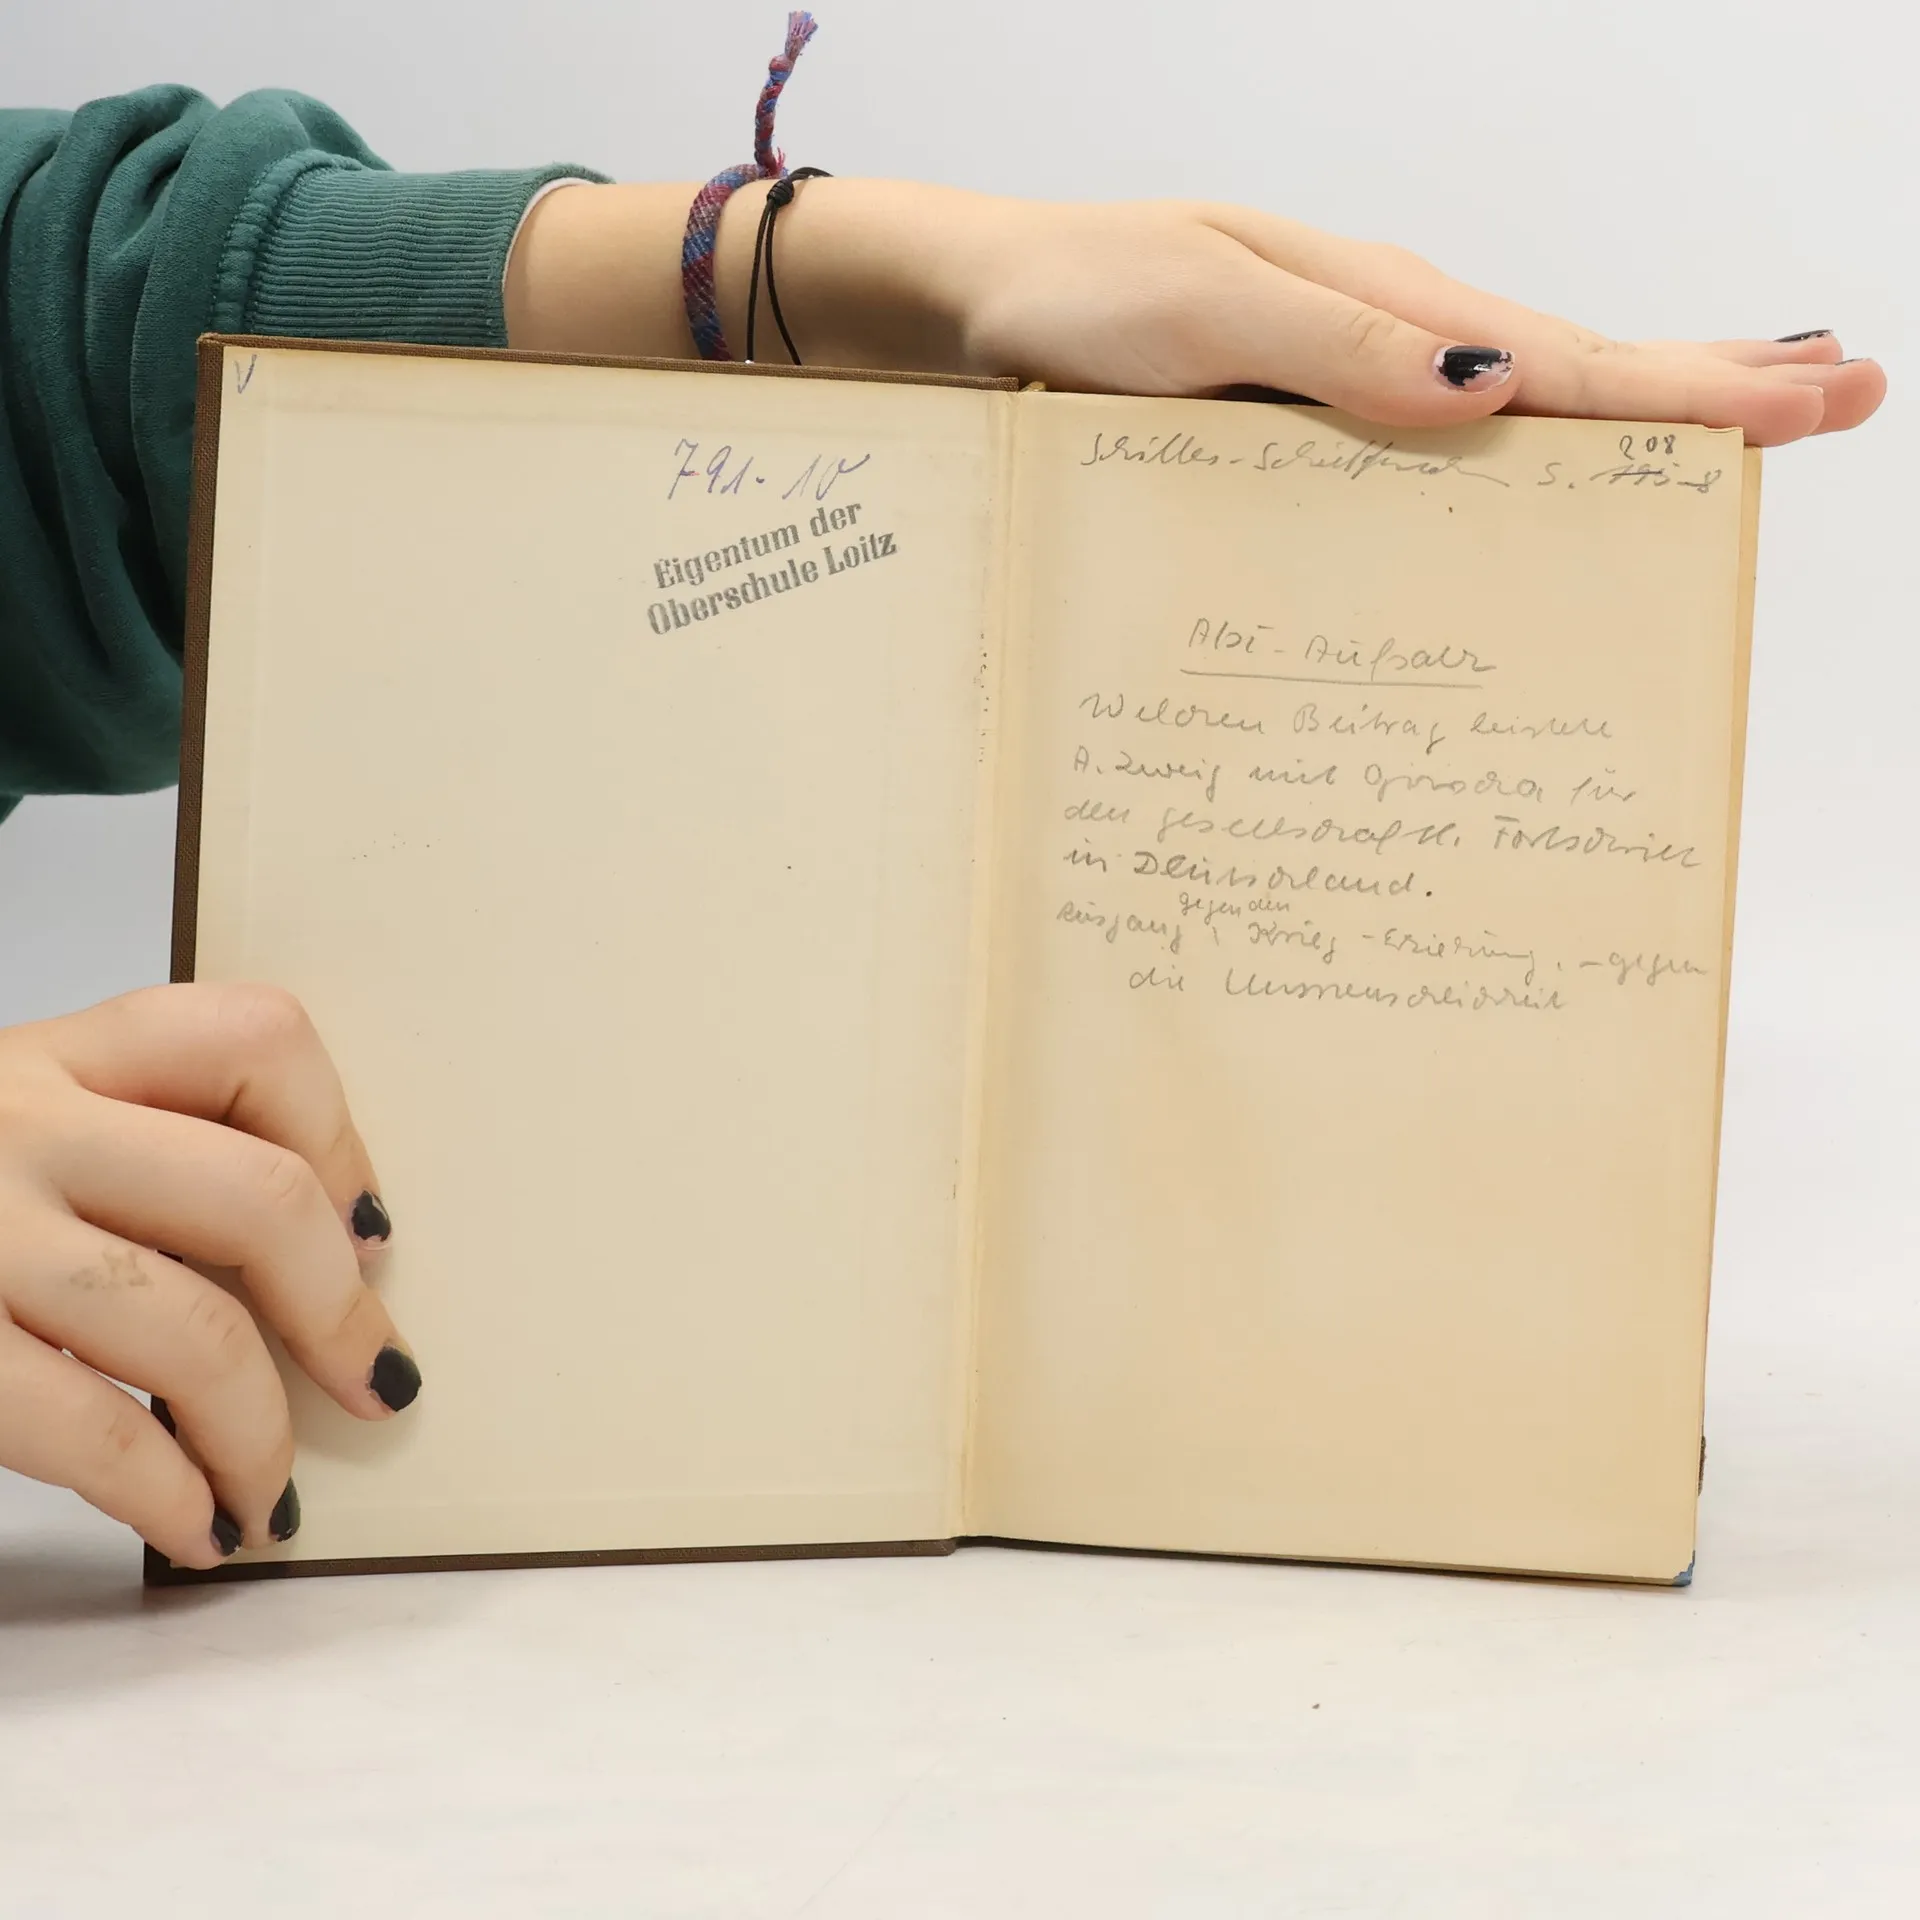 V
791.-10
Eigentum der
Oberschule Loitz
Schiller - S. 195-8
208
Abi - Aufsatz
Welchen Beitrag leistete
A. Zweig mit Grischa für
den gesellschaftl. Fortschritt
in Deutschland.
gegen den
Ausgang, Krieg - Erziehung, - gegen
die Unmenschlichkeit